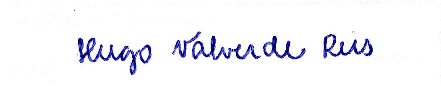 Hugo Valverde Reis